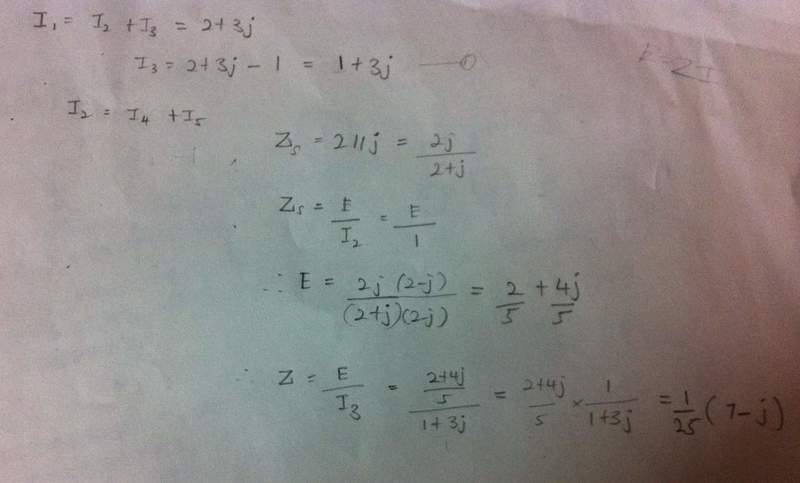 I₁ = I₂ + I₃ = 2+3j
I₃ = 2+3j - 1 = 1+3j —0
E = ZI
I₂ = I₄ + I₅
Z_s = 2||j = 2j / 2+j
Z_s = E / I₂ = E / 1
∴ E = 2j (2-j) / (2+j)(2-j) = 2/5 + 4j/5
∴ Z = E / I₃ = (2+4j / 5) / 1+3j = 2+4j / 5 × 1 / 1+3j = 1/25 (7-j)